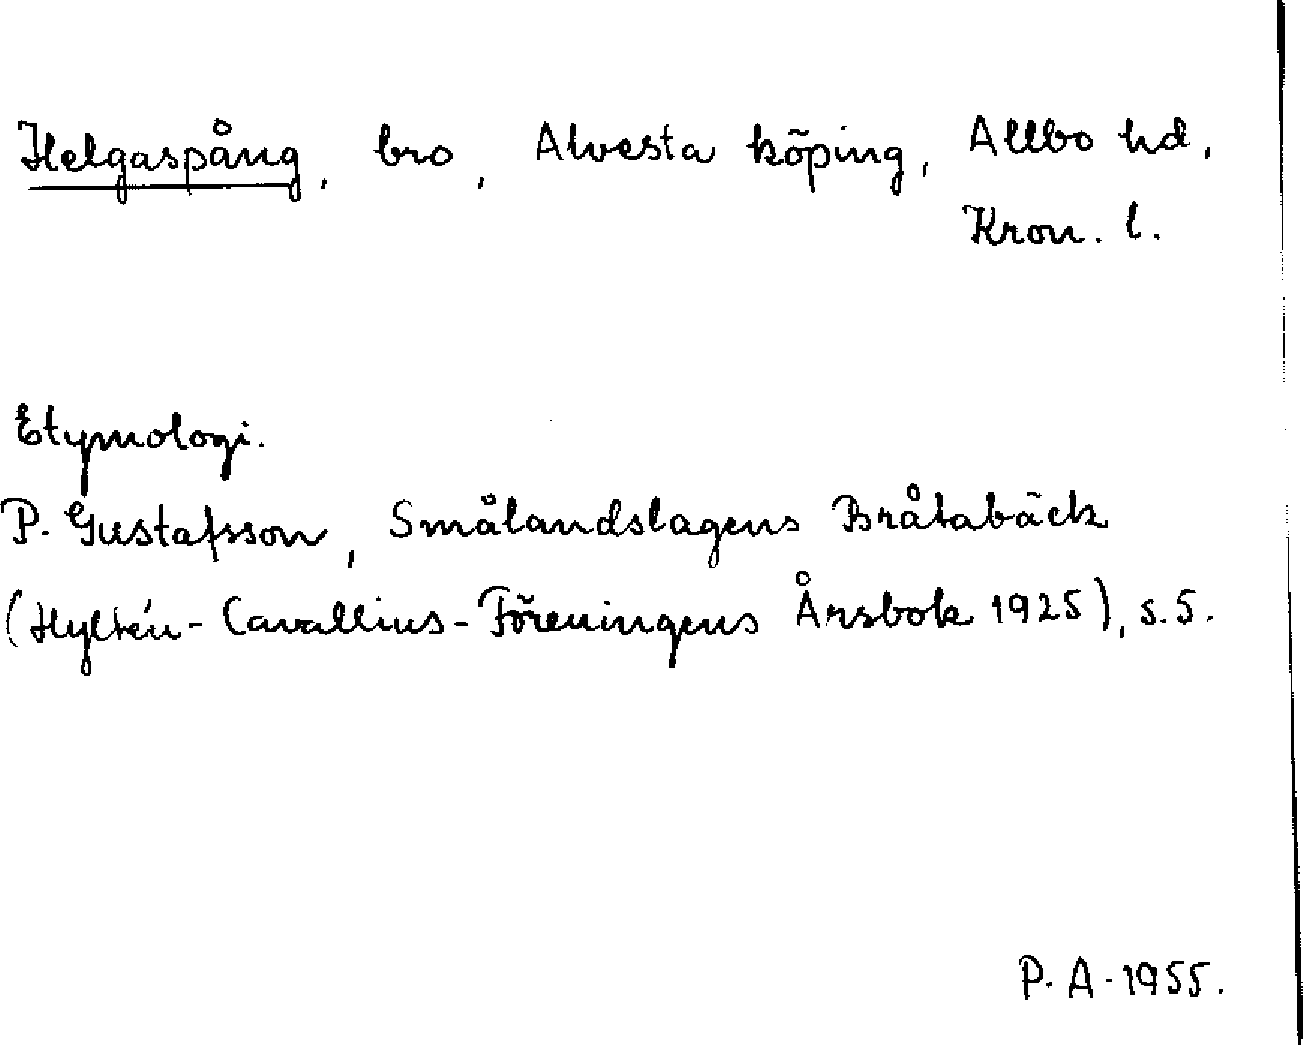 Helgaspång, bro, Alvesta köping, Allbo hd,
Kron. l.
Etymologi.
P. Gustafsson, Smålandslagens Bråtabäck
(Hyltén-Cavallius-Föreningens Årsbok 1925), s. 5.
P. A. 1955.